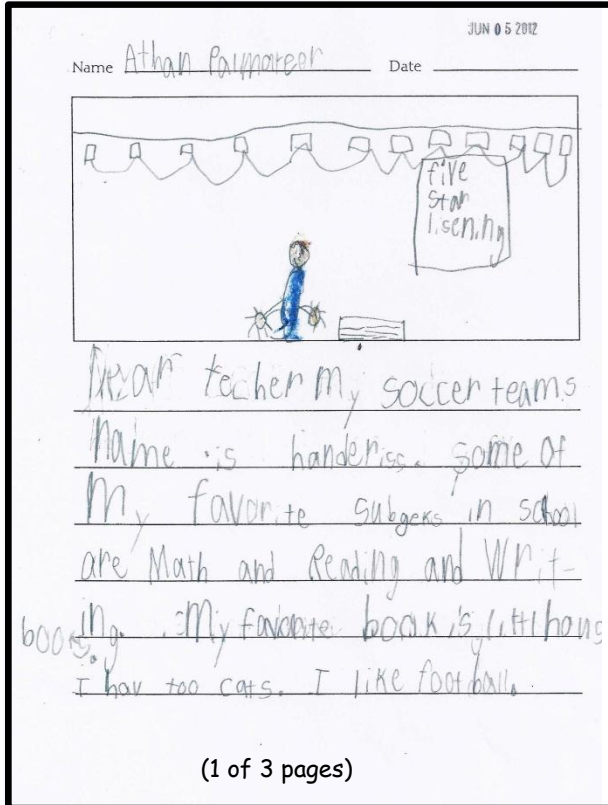 JUN 05 2012
Name Athan Palmateer Date
five
star
lisening
Dear techer My soccer teams
name is handeriss. some of
My favorite subgeks in school
are Math and Reading and Writ-
ing. My favorite book is littl hous
books.
I hav too cats. I like football.
(1 of 3 pages)